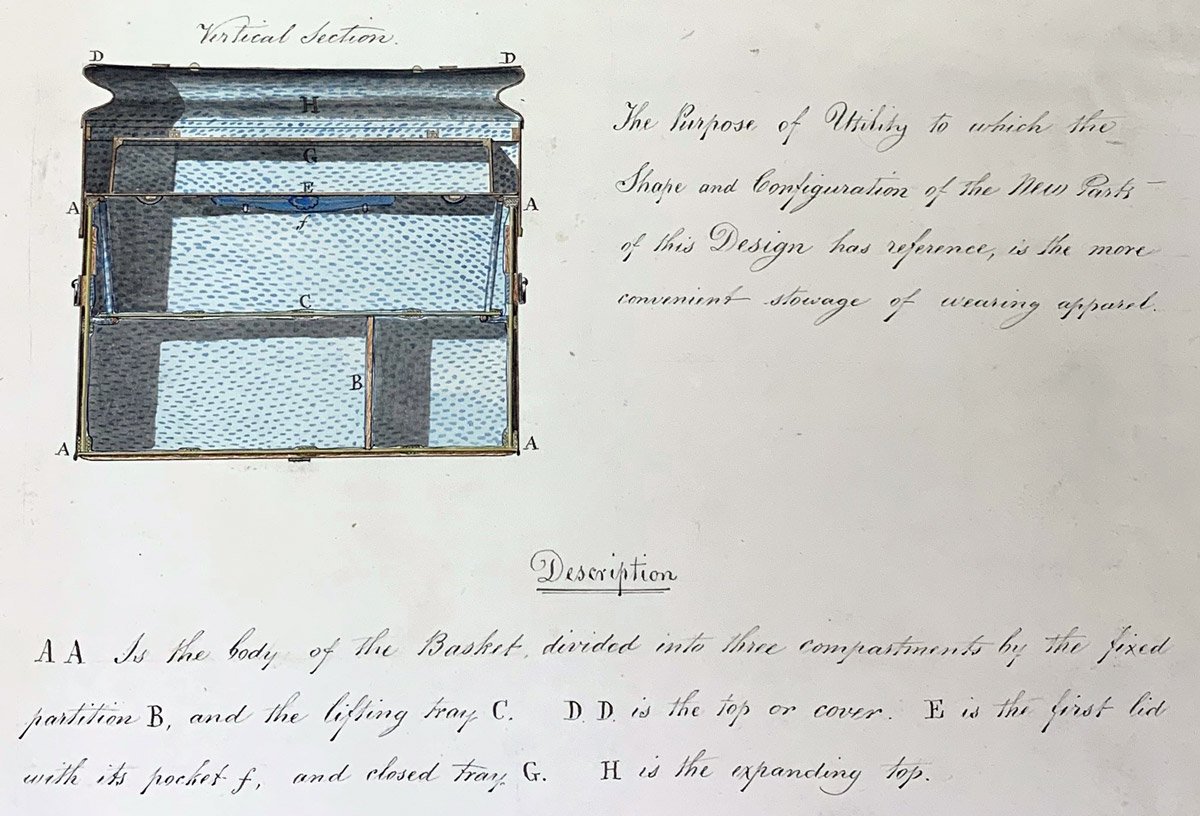 Vertical Section.
D D
H
G
E
A A
f
C
B
A A
The Purpose of Utility to which the
Shape and Configuration of the New Parts
of this Design has reference, is the more
convenient stowage of wearing apparel.
Description
A A Is the body of the Basket, divided into three compartments by the fixed
partition B, and the lifting tray C. D. D. is the top or cover. E is the first lid
with its pocket f, and closed tray G. H is the expanding top.